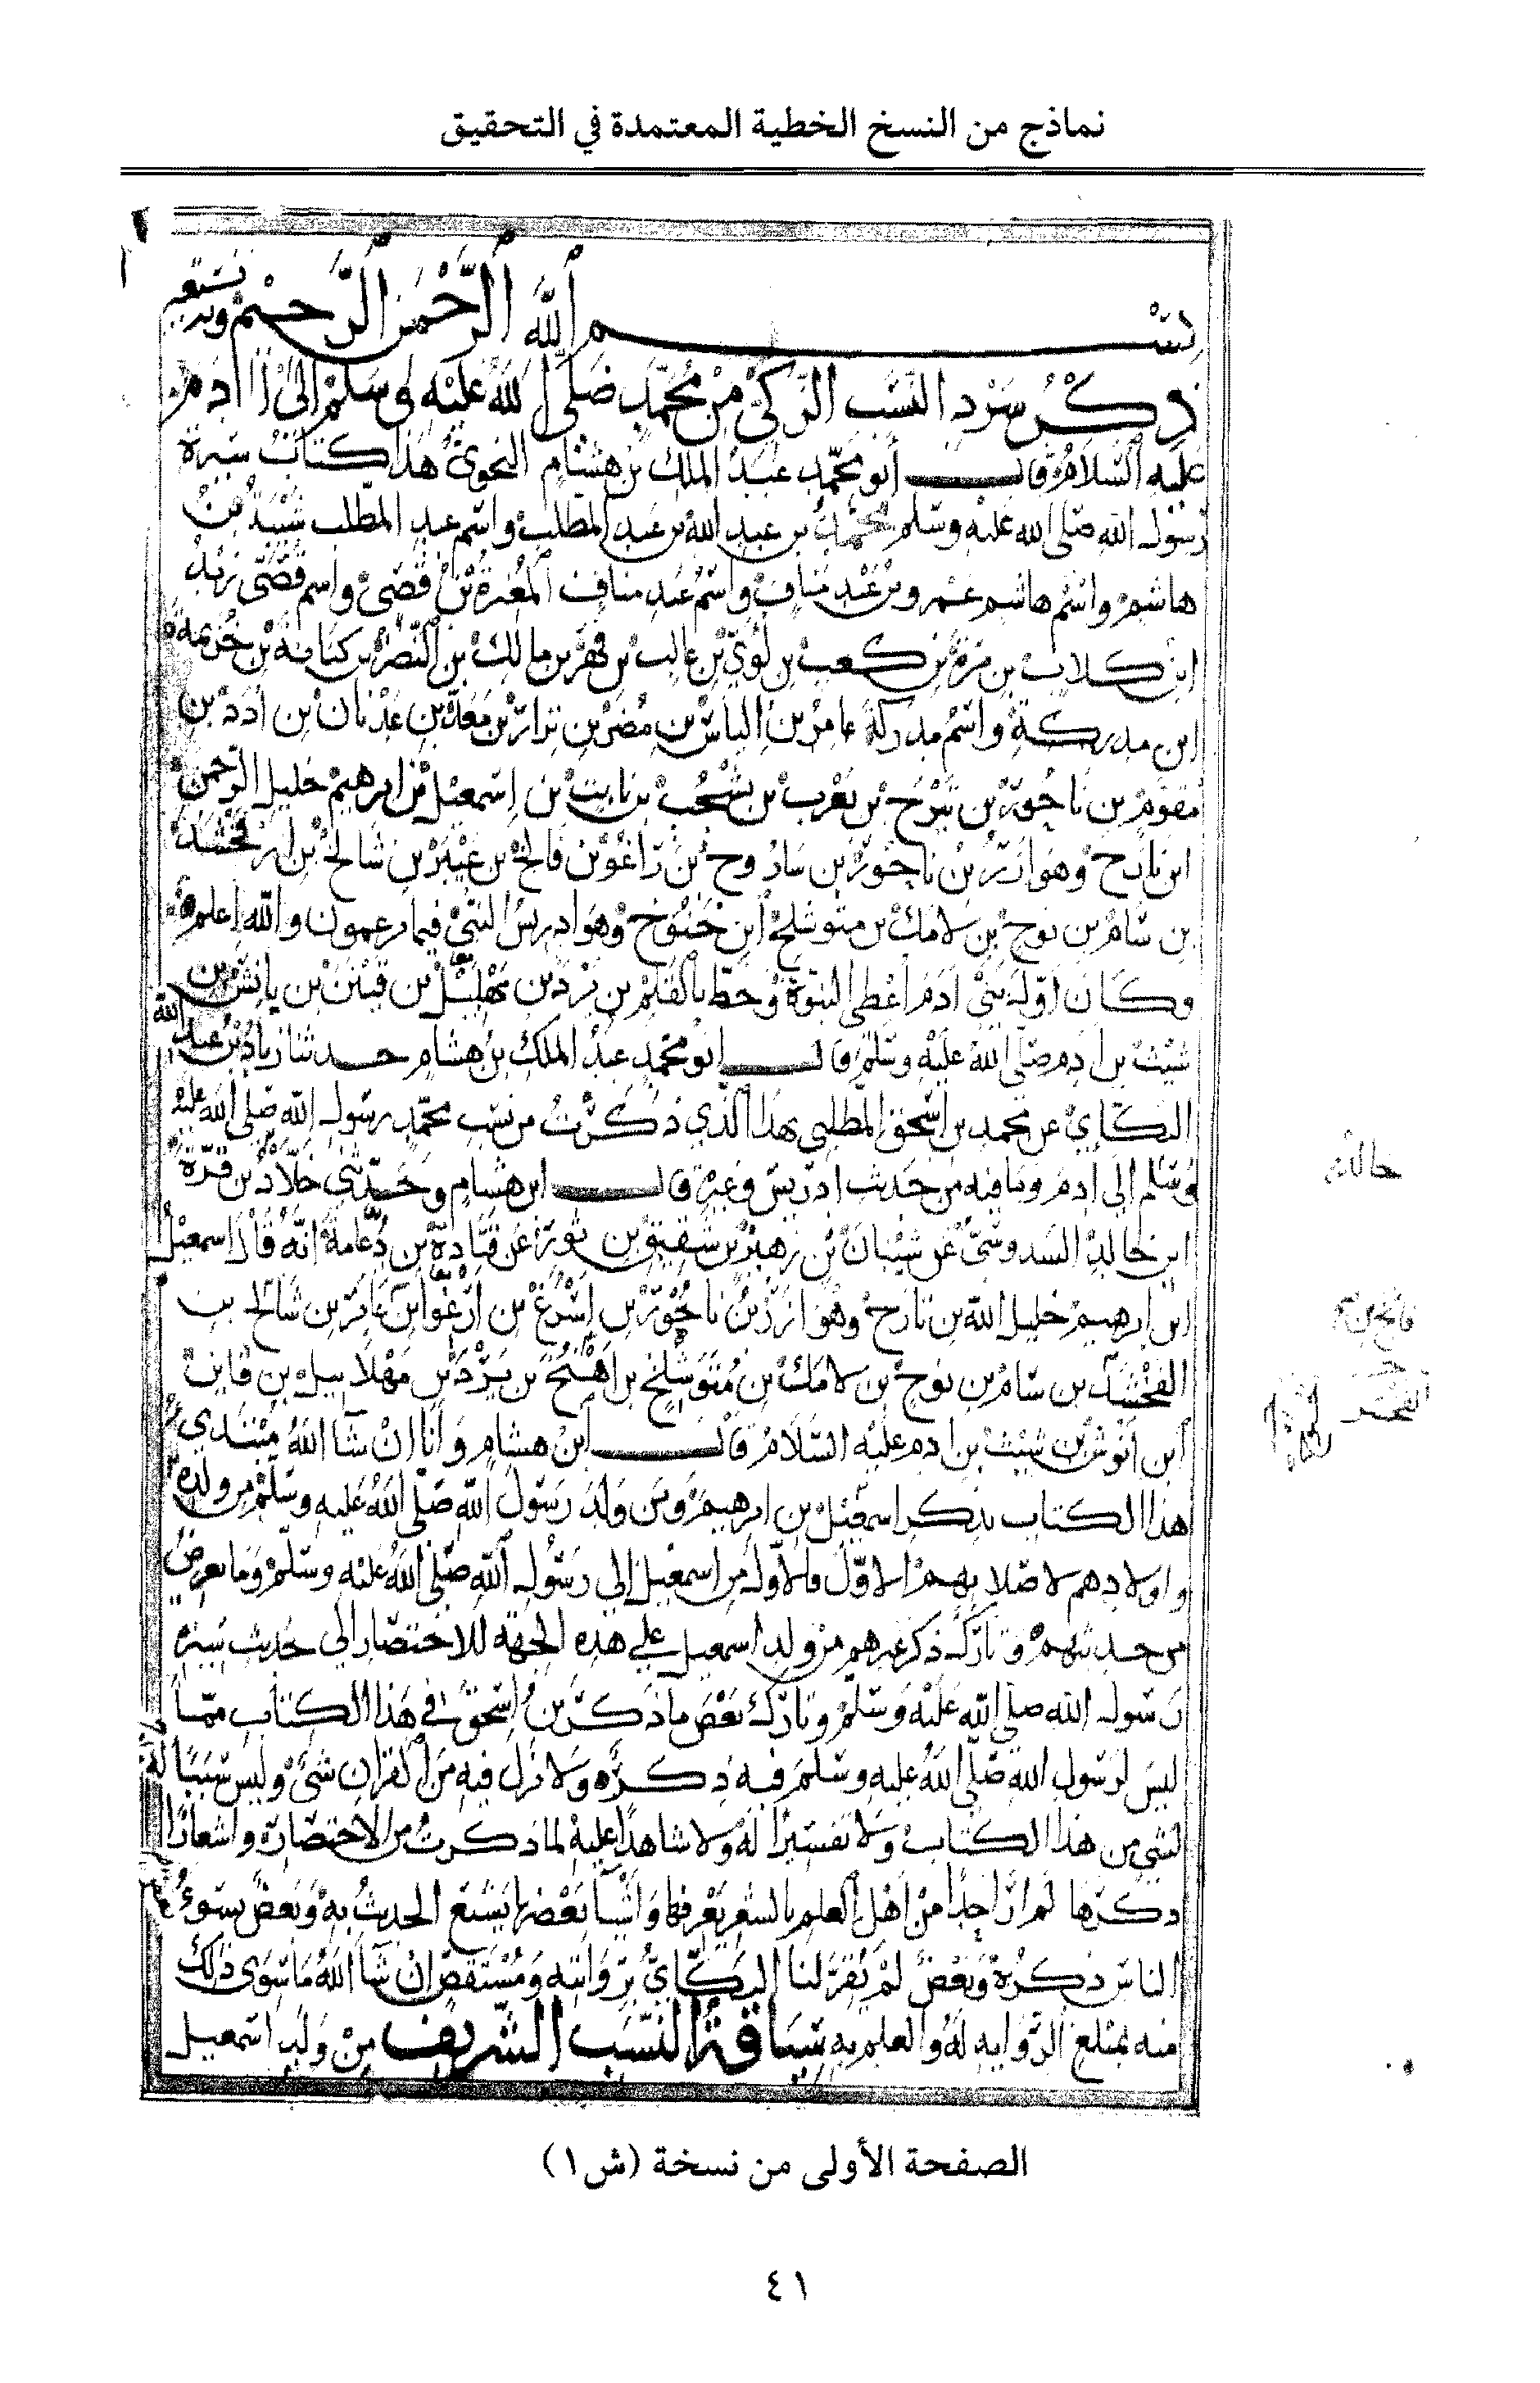 نماذج من النسخ الخطية المعتمدة في التحقيق
١
بسم الله الرحمن الرحيم وبه نستعين
ذكر سرد النسب الزكي من محمد صلى الله عليه وسلم إلى آدم
عليه السلام قال أبو محمد عبد الملك بن هشام النحوي هذا كتاب سيرة
رسول الله صلى الله عليه وسلم محمد بن عبد الله بن عبد المطلب واسم عبد المطلب شيبة بن
هاشم واسم هاشم عمرو بن عبد مناف واسم عبد مناف المغيرة بن قصي واسم قصي زيد
ابن كلاب بن مرة بن كعب بن لؤي بن غالب بن فهر بن مالك بن النضر بن كنانة بن خزيمة
ابن مدركة واسم مدركة عامر بن الياس بن مضر بن نزار بن معد بن عدنان بن أدد بن
مقوم بن ناحور بن تيرح بن يعرب بن يشجب بن نابت بن اسمعيل بن ابرهيم خليل الرحمن
ابن تارح وهو ازر بن ناحور بن ساروح بن راغو بن فالخ بن عيبر بن شالخ بن ارفخشد
بن سام بن نوح بن لامك بن متوشلخ ابن خنوخ وهو ادريس النبي فيما يزعمون والله اعلم
وكان اول بني ادم اعطى النبوة وخط بالقلم بن يرد بن مهليل بن قينن بن يانش بن
شيث بن ادم صلى الله عليه وسلم قال ابو محمد عبد الملك بن هشام حدثنا زياد بن عبد الله
البكاي عن محمد بن اسحق المطلبي بهذا الذي ذكرت من نسب محمد رسول الله صلى الله عليه
وسلم الى ادم وما فيه من حديث ادريس وغيره قال ابن هشام وحدثني خلاد بن قرة
ابن خالد السدوسي عن شيبان بن زهير بن شقيق بن ثور عن قتادة بن دعامة انه قال اسمعيل
ابن ابرهيم خليل الله بن تارح وهو ازر بن ناحور بن اسرغ بن ارغو ابن عابر بن شالخ بن
الفخشد بن سام بن نوح بن لامك بن متوشلخ بن اهنخ بن يرد بن مهلاييل بن قاين
ابن انوش بن شيث بن ادم عليه السلام قال ابن هشام وانا ان شا الله مبتدي
هذا الكتاب بذكر اسمعيل بن ابرهيم ومن ولد رسول الله صلى الله عليه وسلم من ولده
واولادهم لاصلابهم الاول فالاول من اسمعيل الى رسول الله صلى الله عليه وسلم وما يعرض
من حديثهم وتارك ذكر غيرهم من ولد اسمعيل على هذه الجهة للاختصار الى حديث سيرة
رسول الله صلى الله عليه وسلم وتارك بعض ما ذكر بن اسحق في هذا الكتاب مما
ليس لرسول الله صلى الله عليه وسلم فيه ذكر ولا نزل فيه من القران شيء وليس سببا له
لشي من هذا الكتاب ولا تفسيرا له ولا شاهدا عليه لما ذكرت من الاختصار واشعارا
ذكرها لم ار احدا من اهل العلم بالشعر يعرفها واشيا بعضها يشنع الحديث به وبعض يسوء
الناس ذكره وبعض لم يقر لنا البكاي بروايته ومستقص ان شا الله ما سوى ذلك
منه بمبلغ الرواية له والعلم به سياقة النسب الشريف من ولد اسمعيل
الصفحة الأولى من نسخة (ش١)
٤١